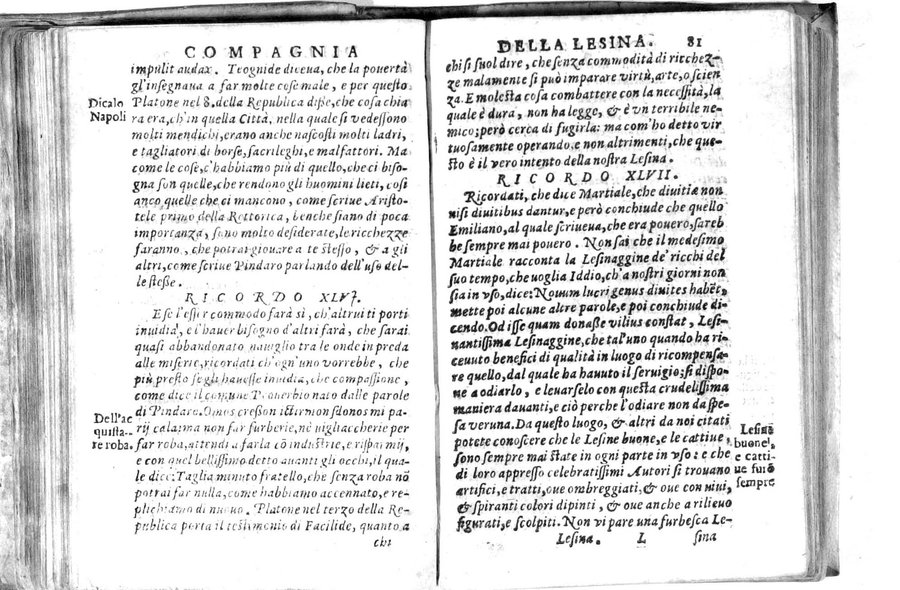 COMPAGNIA
impulit audax. Teognide diceua, che la pouertà
gl'insegnaua a far molte cose male, e per questo
Dicalo Platone nel 8. della Republica disse, che cosa chia
Napoli ra era, ch'in quella Città, nella quale si vedessono
molti mendichi, erano anche nascosti molti ladri,
e tagliatori di borse, sacrileghi, e malfattori. Ma
come le cose, c'habbiamo più di quello, che ci biso-
gna son quelle, che rendono gli huomini lieti, cosi
anco quelle che ci mancono, come scriue Aristo-
tele primo della Rettorica, benche siano di poca
importanza, sono molto desiderate, le ricchezze
faranno, che potrai giouare a te stesso, & a gli
altri, come scriue Pindaro parlando dell'uso del-
le stesse.
RICORDO XLVI.
E se l'esser commodo farà sì, ch'altrui ti porti
inuidia, e l'hauer bisogno d'altri farà, che sarai
quasi abbandonato nauiglio tra le onde in preda
alle miserie, ricordati ch'ogn'uno vorrebbe, che
più presto se gli hauesse inuidia, che compassione,
come dice il comune Prouerbio nato dalle parole
di Pindaro. Omos creßon istirmon sdonos mi pa-
Dell'ac rij calaima non far furberie, nè vigliaccherie per
quista- far roba, attendi a farla cō industrie, e rispar mij,
re roba. e con quel bellissimo detto auanti gli occhi, il qua-
le dice: Taglia minuto fratello, che senza roba nō
potrai far nulla, come habbiamo accennato, e re-
plichiamo di nuouo. Platone nel terzo della Re-
publica porta il testimonio di Facilide, quanto a
chi
DELLA LESINA. 81
chi si suol dire, che senza commodità di ricchez-
ze malamente si può imparare virtù, arte, o scien
za. E molesta cosa combattere con la necessità, la
quale è dura, non ha legge, & è vn terribile ne-
mico; però cerca di fugirla: ma com'ho detto vir
tuosamente operando, e non altrimenti, che que-
sto è il vero intento della nostra Lesina.
RICORDO XLVII.
Ricordati, che dice Martiale, che diuitiæ non
nisi diuitibus dantur, e però conchiude che quello
Emiliano, al quale scriueua, che era pouero, sareb
be sempre mai pouero. Non sai che il medesimo
Martiale racconta la Lesinaggine de' ricchi del
suo tempo, che uoglia Iddio, ch'a nostri giorni non
sia in vso, dice: Nouum lucri genus diuites habēt,
mette poi alcune altre parole, e poi conchiude di-
cendo. Odisse quam donasse vilius constat, Lesi-
nantissima Lesinaggine, che tal'uno quando ha ri-
ceuuto benefici di qualità in luogo di ricompensa-
re quello, dal quale ha hauuto il seruigio; si dispo-
ne a odiarlo, e leuarselo con questa crudelissima
maniera dauanti, e ciò perche l'odiare non dà spe-
sa veruna. Da questo luogo, & altri da noi citati
potete conoscere che le Lesine buone, e le cattiue, Lesine
sono sempre mai state in ogni parte in vso: e che buone,
di loro appresso celebratissimi Autori si trouano e catti-
artifici, e tratti, oue ombreggiati, & oue con uiui, ue furō
& spiranti colori dipinti, & oue anche a rilieuo sempre
figurati, e scolpiti. Non vi pare una furbesca Le-
Lesina. L sina